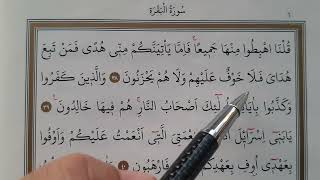 سُورَةُ الْبَقَرَةِ ٦
قُلْنَا اهْبِطُوا مِنْهَا جَمِيعًا فَاِمَّا يَأْتِيَنَّكُمْ مِنِّى هُدًى فَمَنْ تَبِعَ
هُدَاىَ فَلَا خَوْفٌ عَلَيْهِمْ وَلَا هُمْ يَحْزَنُونَ ٣٨ وَالَّذِينَ كَفَرُوا
وَكَذَّبُوا بِاٰيَاتِنَا اُولٰٓئِكَ اَصْحَابُ النَّارِ هُمْ فِيهَا خَالِدُونَ ٣٩
يَابَنِى اِسْرَائِلَ نِعْمَتِىَ الَّتِى اَنْعَمْتُ عَلَيْكُمْ وَاَوْفُوا
بِعَهْدِى اُوفِ بِعَهْدِكُمْ فَارْهَبُونِ ٤٠